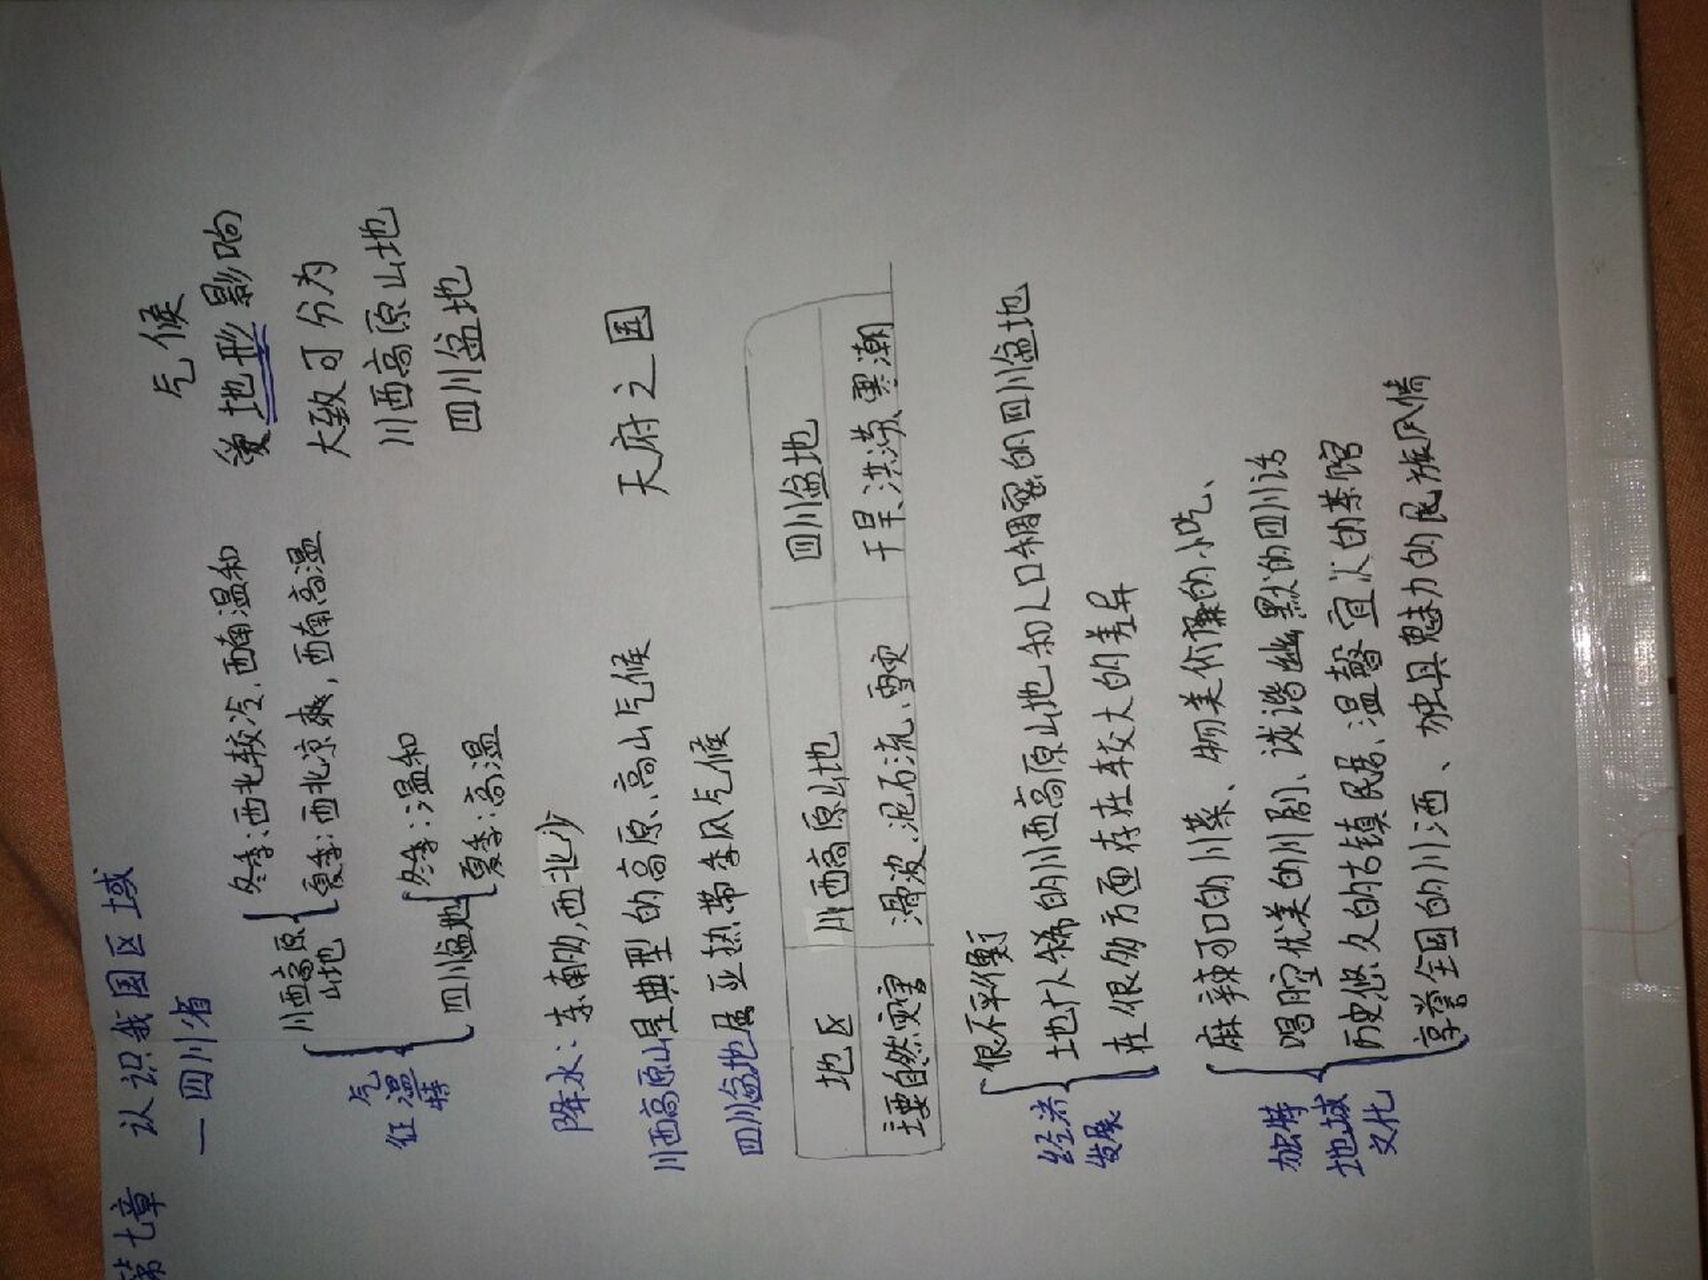 第七章 认识我国区域
一四川省
气候
受地形影响
大致可分为
川西高原山地
四川盆地
气温特征
川西高原山地
冬季:西北较冷,西南温和
夏季:西北凉爽,西南高温
四川盆地
冬季:温和
夏季:高温
降水:东南多,西北少
天府之国
川西高原山是典型的高原、高山气候
四川盆地属亚热带季风气候
地区 川西高原山地 四川盆地
主要自然灾害 滑波、泥石流、雪灾 干旱、洪涝、寒潮
经济发展
很不平衡
地广人稀的川西高原山地和人口稠密的四川盆地
在很多方面存在存在较大的差异
独特地域文化
麻辣可口的川菜、物美价廉的小吃、
唱腔优美的川剧、诙谐幽默的四川话
历史悠久的古镇民居、温馨宜人的茶馆
享誉全国的川酒、独具魅力的民族风情